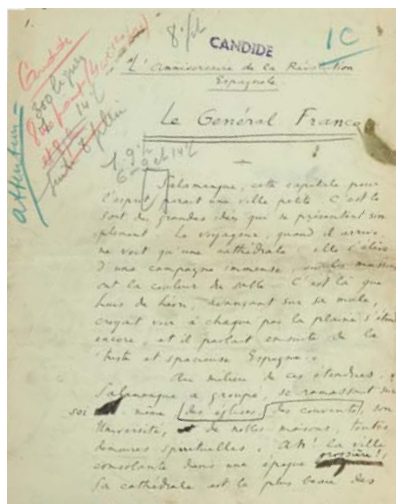 1.
8.
CANDIDE
1C
Candide
500 lignes
attention
"L'Anniversaire de la Révolution
Espagnole
Le Général Franco
Salamanque, cette capitale pour
l'esprit, paraît une ville petite. C'est le
sort des grandes idées qui se présentent sim
plement. Le voyageur, quand il arrive
ne voit qu'une cathédrale. Elle s'élève
d'une campagne immense, où les maisons
ont la couleur du sable. C'est là que
avançant sur sa mule,
croyait voir à chaque pas la plaine s'étendre
encore, et il parlait ensuite de la
"vaste et spacieuse Espagne".
Au milieu de ces étendues,
Salamanque a groupé, se ramassant sur
soi même, des églises, des couvents, son
Université, de nobles maisons, toutes
demeures spirituelles. Ah! la ville
consolante dans une époque grossière!
Sa cathédrale est le plus beau des